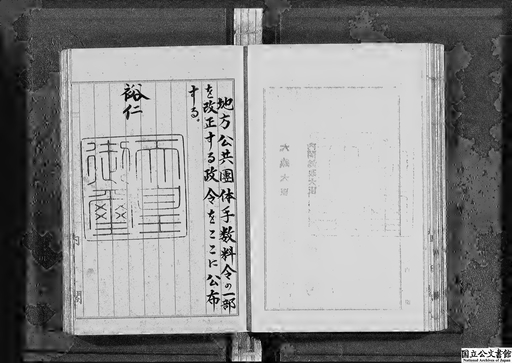 地方公共團体手数料令の一部
を改正する政令をここに公布
する。
裕仁
天皇
御璽
国立公文書館
National Archives of Japan